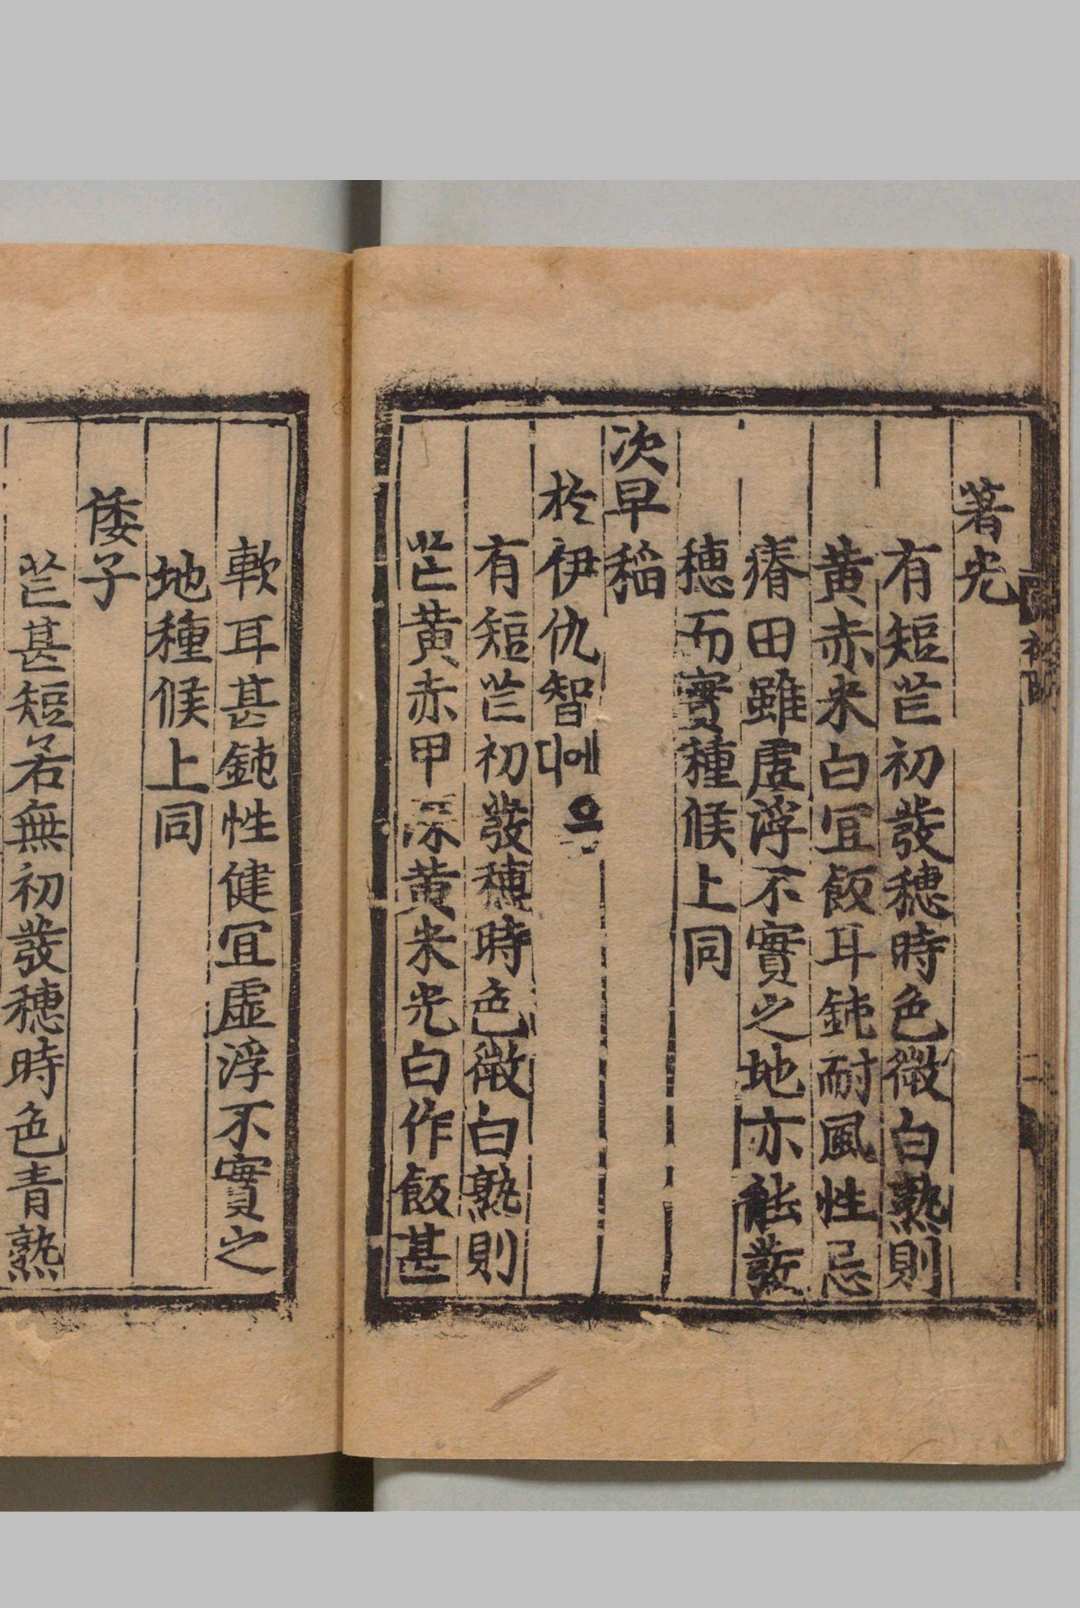 著光
有短芒初發穗時色微白熟則
黄赤米白冝飯耳鈍耐風性忌
瘠田雖虛浮不實之地亦能發
穗而實種候上同
次早稻
於伊仇智
有短芒初發穗時色微白熟則
芒黄赤甲深黄米光白作飯甚
軟耳甚鈍性健冝虛浮不實之
地種候上同
倭子
芒甚短若無初發穗時色青熟